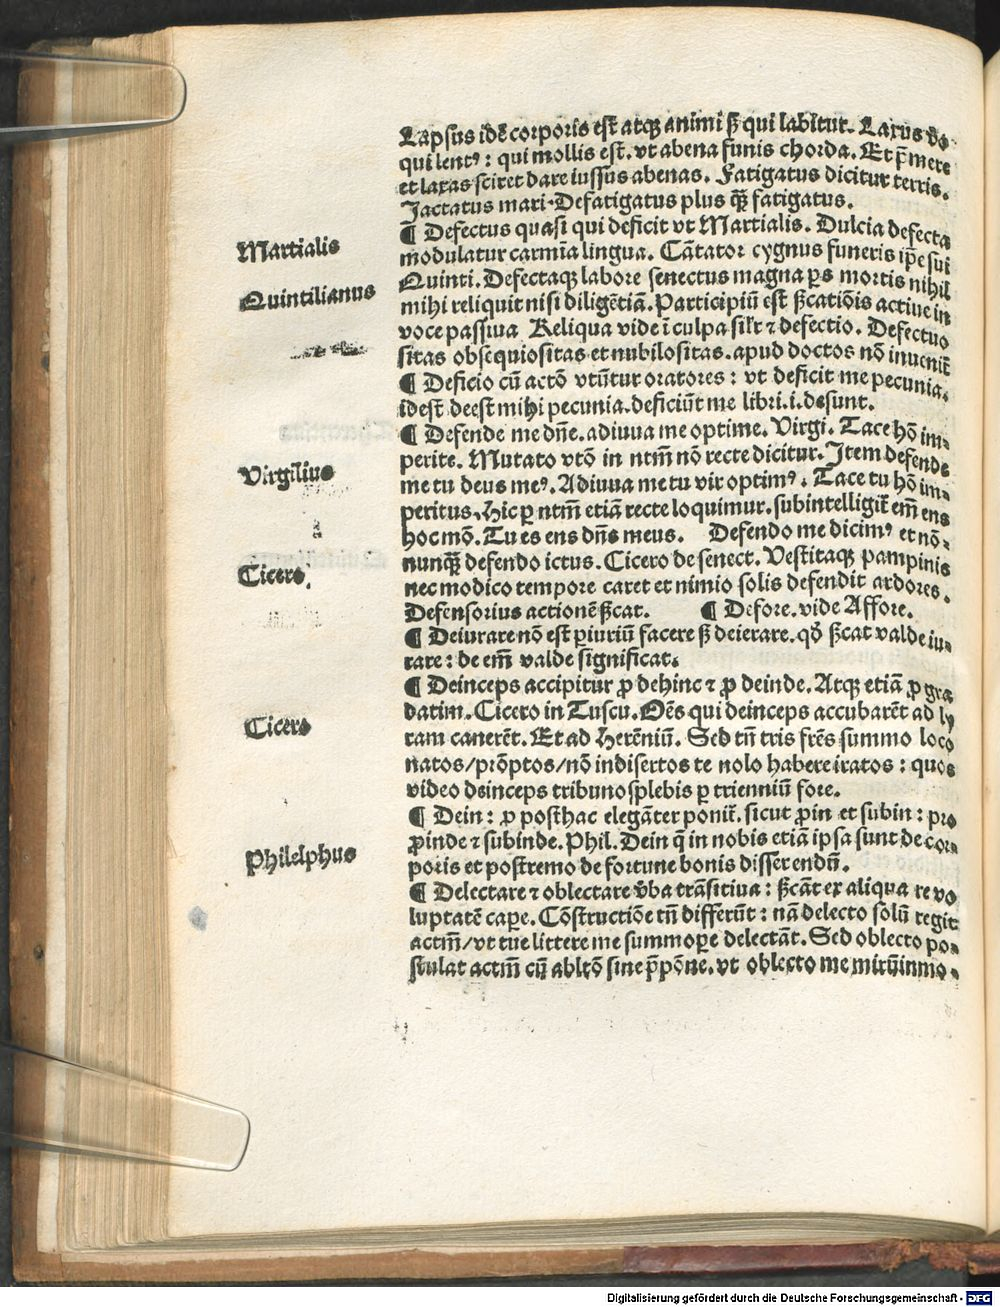 Lapsus idē corporis est atqꝫ animi sꝫ qui labitur. Laxus vo
qui lentꝰ: qui mollis est. vt abena funis chorda. Et p̄mere
et laxas sciret dare iussus abenas. Fatigatus dicitur terris.
Jactatus mari. Defatigatus plus qꝫ̄ fatigatus.
¶ Defectus quasi qui deficit vt Martialis. Dulcia defecta
Martialis
modulatur carmīa lingua. Cātator cygnus funeris ip̄e sui
Quinti. Defectaqꝫ labore senectus magna ꝑs mortis nihil
Quintilianus
mihi reliquit nisi diligētiā. Participiū est sꝫcatiōis actiue in
voce passiua Reliqua vide ī culpa silr ⁊ defectio. Defectuo
sitas obsequiositas et nubilositas. apud doctos nō inueniūt̄
¶ Deficio cū actō vtūtur oratores: vt deficit me pecunia.
idest deest mihi pecunia. deficiūt me libri. i. desunt.
¶ Defende me dn̄e. adiuua me optime. Virgi. Tace hō im-
perite. Mutato vtō in ntm̄ nō recte dicitur. Item defende
Virgilius
me tu deus meꝰ. Adiuua me tu vir optimꝰ. Tace tu hō im-
peritus. Hic ꝑ ntm̄ etiā recte loquimur. subintelligit̄ em̄ ens
hoc mō. Tu es ens dn̄s meus. Defendo me dicimꝰ et nō-
nunqꝫ̄ defendo ictus. Cicero de senect. Vestitaqꝫ pampinis
Cicero.
nec modico tempore caret et nimio solis defendit ardores.
Defensorius actionē sꝫcat. ¶ Defore. vide Affore.
¶ Deiurare nō est ꝑiuriū facere sꝫ deierare. qđ sꝫcat valde iu-
rare: de em̄ valde significat.
¶ Deinceps accipitur ꝓ dehinc ⁊ ꝓ deinde. Atqꝫ etiā ꝓ gra
datim. Cicero in Tuscu. Oēs qui deinceps accubarēt ad ly
Cicero
ram canerēt. Et ad Herēniū. Sed tn̄ tris frēs summo loco
natos/prōptos/nō indisertos te nolo habere iratos: quos
video deinceps tribunos plebis ꝑ trienniū fore.
¶ Dein: ꝓ posthac elegāter ponit̄. sicut ꝓin et subin: pro
ꝓinde ⁊ subinde. Phil. Dein q̄ in nobis etiā ipsa sunt de cor-
Philelphus
poris et postremo de fortune bonis disserendū.
¶ Delectare ⁊ oblectare v̄ba trāsitiua: sꝫcāt ex aliqua re vo
luptatē caꝑe. Cōstructiōe tn̄ differūt: nā delecto solū regit
actm̄/vt tue littere me summoꝑe delectāt. Sed oblecto po-
stulat actm̄ cū abltō sine p̄pōne. vt oblecto me mirū inmo-
Digitalisierung gefördert durch die Deutsche Forschungsgemeinschaft - DFG